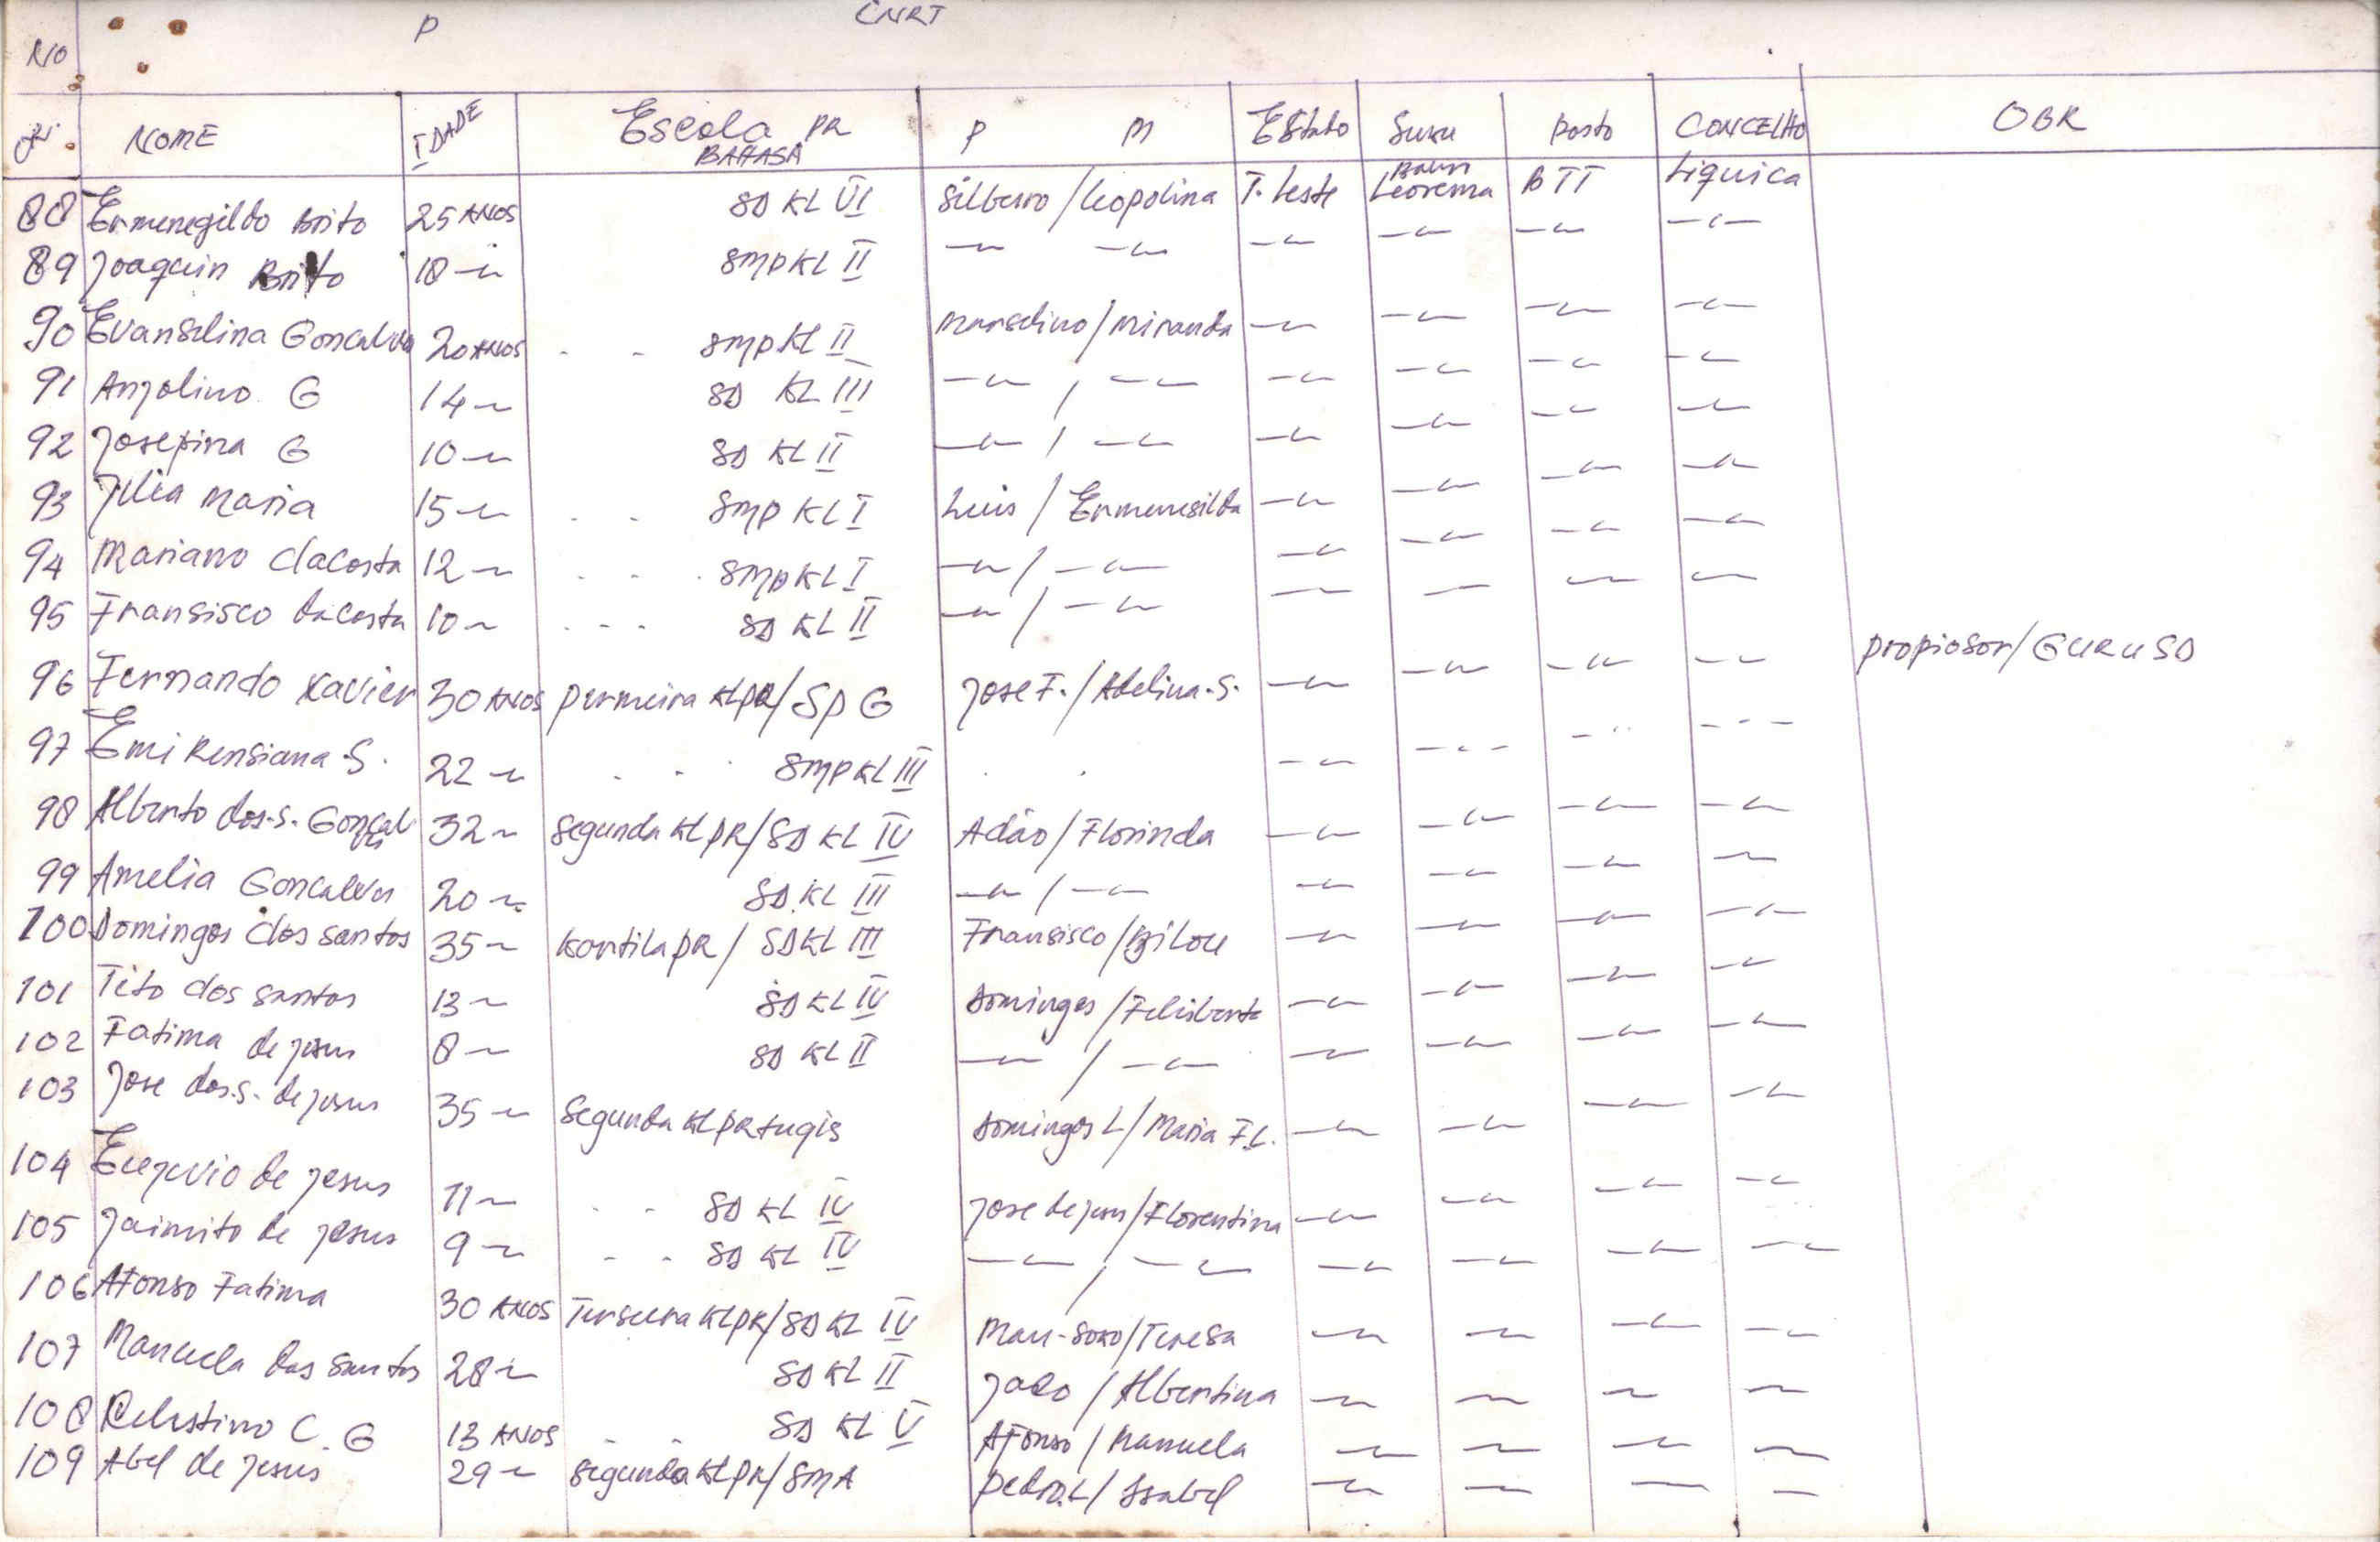 P CNRT
NO
NOME IDADE Escola PR P M EStato Suku Posto CONCELHO OBR
BAHASA
88 Ermenegildo Brito 25 ANOS SD KL VI Silberio / Leopolina T. Leste Leorema BTT Liquica
89 Joaquin Brito 18 -〃- SMP KL II -〃- -〃- -〃- -〃- -〃- -〃-
90 Evanselina Goncalves 20 ANOS - - SMP KL II Marselino / Miranda -〃- -〃- -〃- -〃-
91 Anjolino G 14 -〃- SD KL III -〃- / -〃- -〃- -〃- -〃- -〃-
92 Josepina G 10 -〃- SD KL II -〃- / -〃- -〃- -〃- -〃- -〃-
93 Julia Maria 15 -〃- - - SMP KL I Luis / Ermenesilda -〃- -〃- -〃- -〃-
94 Mariano dacosta 12 -〃- - - - SMP KL I -〃- / -〃- -〃- -〃- -〃- -〃-
95 Fransisco dacosta 10 -〃- - - - SD KL II -〃- / -〃- -〃- -〃- -〃- -〃-
96 Fernando Xavier 30 ANOS Permeira KLPR/SPG Jose F. / Adelina.S. -〃- -〃- -〃- -〃- Propiosor/GURU SD
97 Emi Rensiana.S. 22 -〃- - - - SMP KL III - - -〃- -〃- -〃- -〃-
98 Alberto dos.S. Gonçalves 32 -〃- Segunda KLPR/SD KL IV Adão / Florinda -〃- -〃- -〃- -〃-
99 Amelia Goncalves 20 -〃- SD.KL III -〃- / -〃- -〃- -〃- -〃- -〃-
100 Domingos dos santos 35 -〃- Kartila PR / SD KL III Fransisco / Bilou -〃- -〃- -〃- -〃-
101 Tito dos santos 13 -〃- SD KL IV Domingos / Feliberta -〃- -〃- -〃- -〃-
102 Fatima de jesus 8 -〃- SD KL II -〃- / -〃- -〃- -〃- -〃- -〃-
103 Jose dos.S. de jesus 35 -〃- Segunda KL PRtugis Domingos L / Maria F.L. -〃- -〃- -〃- -〃-
104 de jesus 11 -〃- - - SD KL IV Jose de jesus / Florentina -〃- -〃- -〃- -〃-
105 Jaimito de jesus 9 -〃- - - SD KL IV -〃- / -〃- -〃- -〃- -〃- -〃-
106 Afonso Fatima 30 ANOS Terseira KLPR/SD KL IV Mau-Soko / Teresa -〃- -〃- -〃- -〃-
107 Manuela dos santos 28 -〃- SD KL II / Albertina -〃- -〃- -〃- -〃-
108 Celestino C. G 13 ANOS - - SD KL V Afonso / Manuela -〃- -〃- -〃- -〃-
109 Abel de jesus 29 -〃- Segunda KLPR/SMA Pedro.L / Isabel -〃- -〃- -〃- -〃-